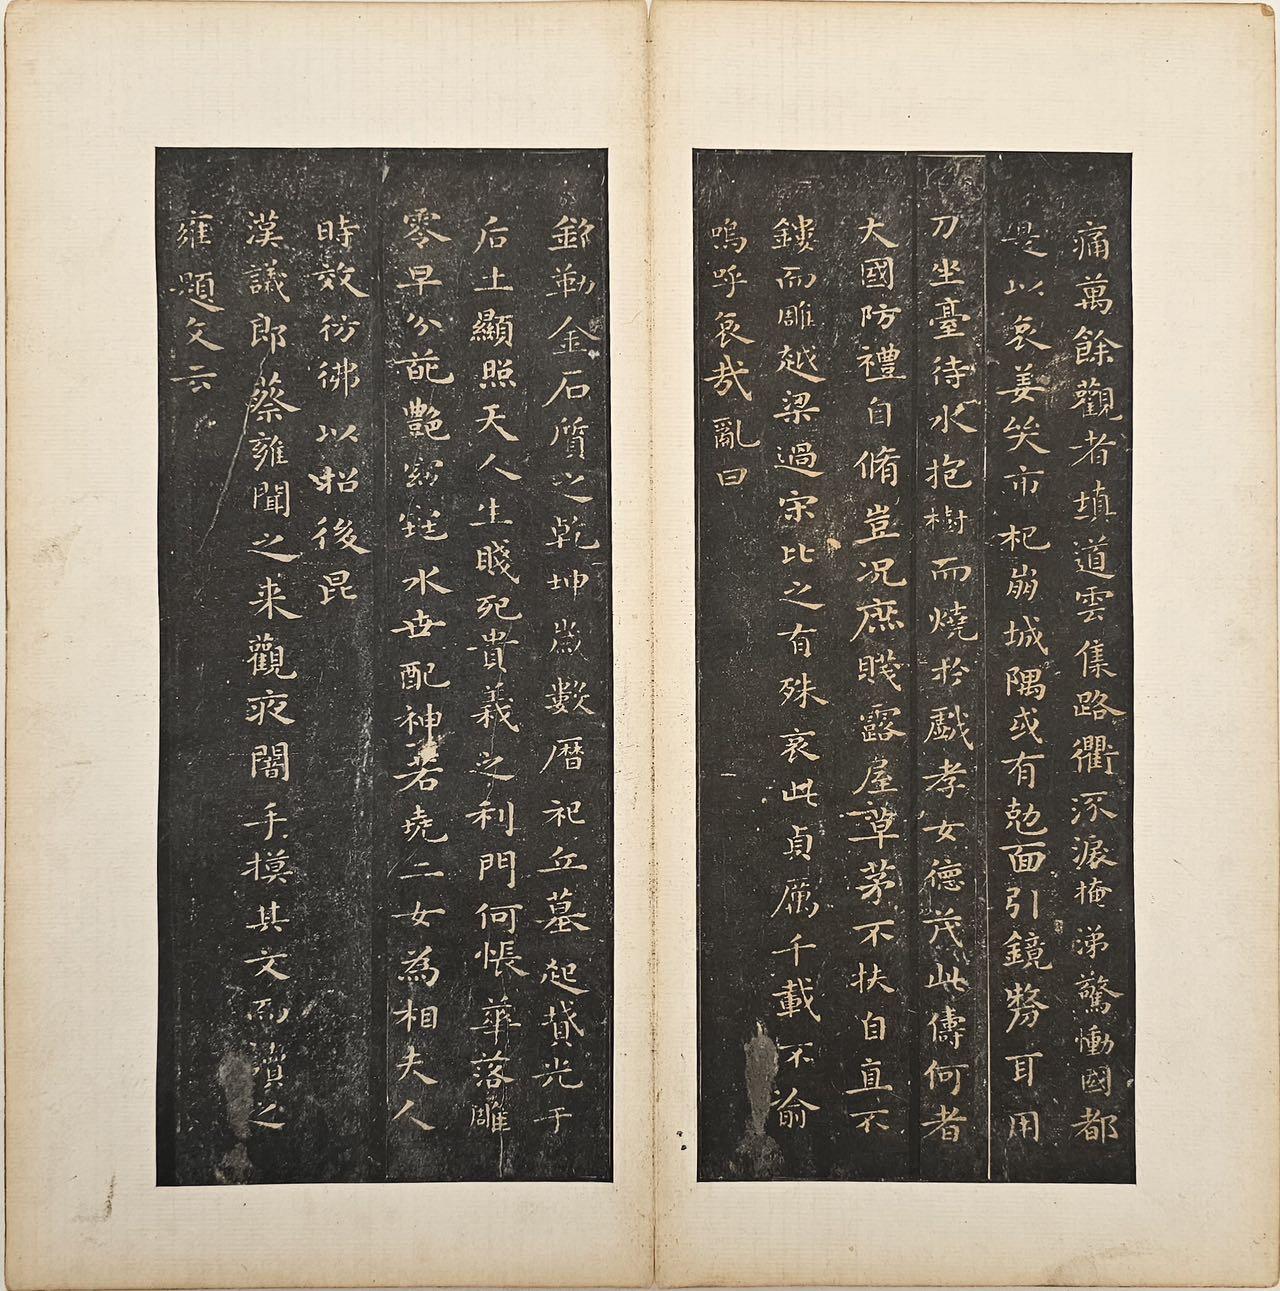 痛萬餘觀者填道雲集路衢泺淚掩涕驚慟國都
是以哀姜哭市杞崩城隅或有勊面引鏡剺耳用
刀坐臺待水抱樹而燒於戲孝女德茂此儔何者
大國防禮自脩豈況庶賤露屋草茅不扶自直不
鏤而雕越梁過宋比之有殊哀此貞厲千載不渝
嗚呼哀哉亂曰
銘勒金石質之乾坤歲數曆祀丘墓起墳光于
后土顯照天人生賤死貴義之利門何悵華落雕
零早分葩艷窈窕永世配神若堯二女為相夫人
時效彷彿以招後昆
漢議郎蔡雍聞之来觀夜闇手摸其文而讀之
雍題文云